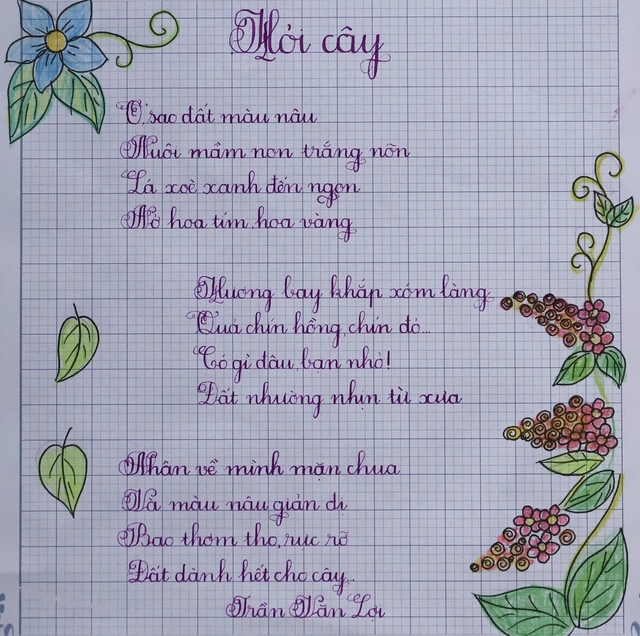 Hỏi cây
Ở sao đất màu nâu
Nuôi mầm non trắng nõn
Lá xoè xanh đến ngọn
Nở hoa tím, hoa vàng
Hương bay khắp xóm làng
Quả chín hồng, chín đỏ...
Có gì đâu, bạn nhỏ!
Đất nhường nhịn từ xưa
Nhân về mình mặn chua
Và màu nâu giản dị
Bao thơm tho, rực rỡ
Đất dành hết cho cây...
Trần Văn Lợi